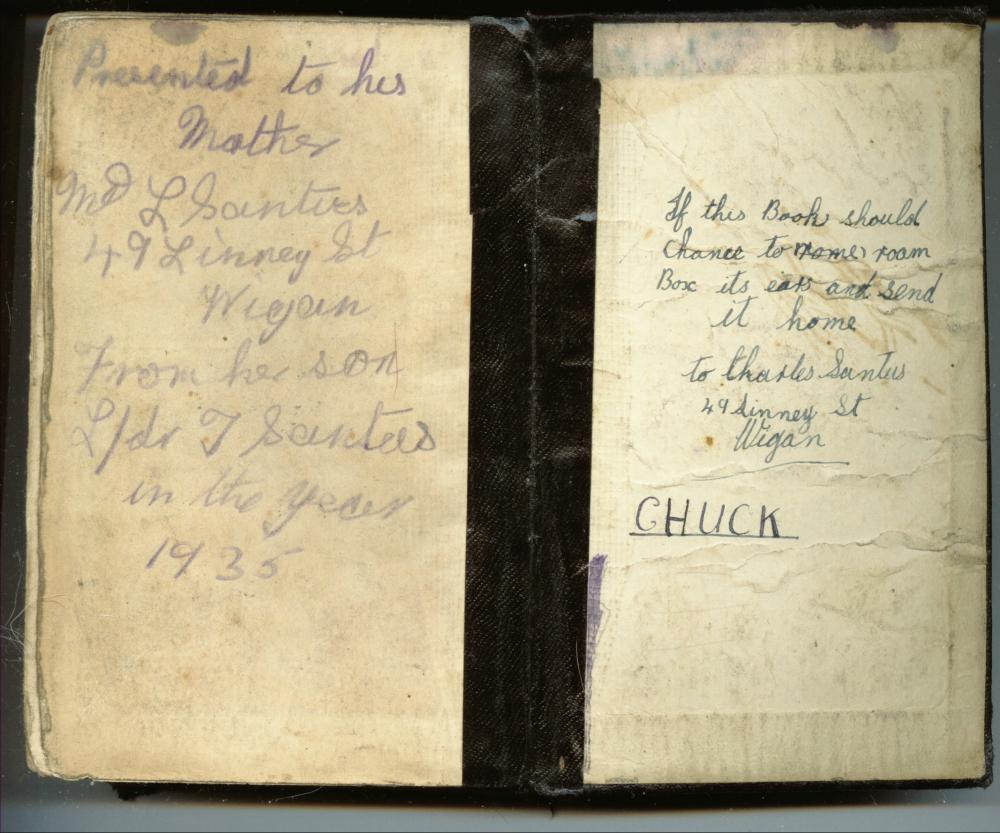 Presented to his
Mother
L Santus
49 Linney St
Wigan
From her son
L/dr T Santus
in the year
1935
If this Book should
Chance to roam
Box its ears and send
it home
to Charles Santus
49 Linney St
Wigan
CHUCK